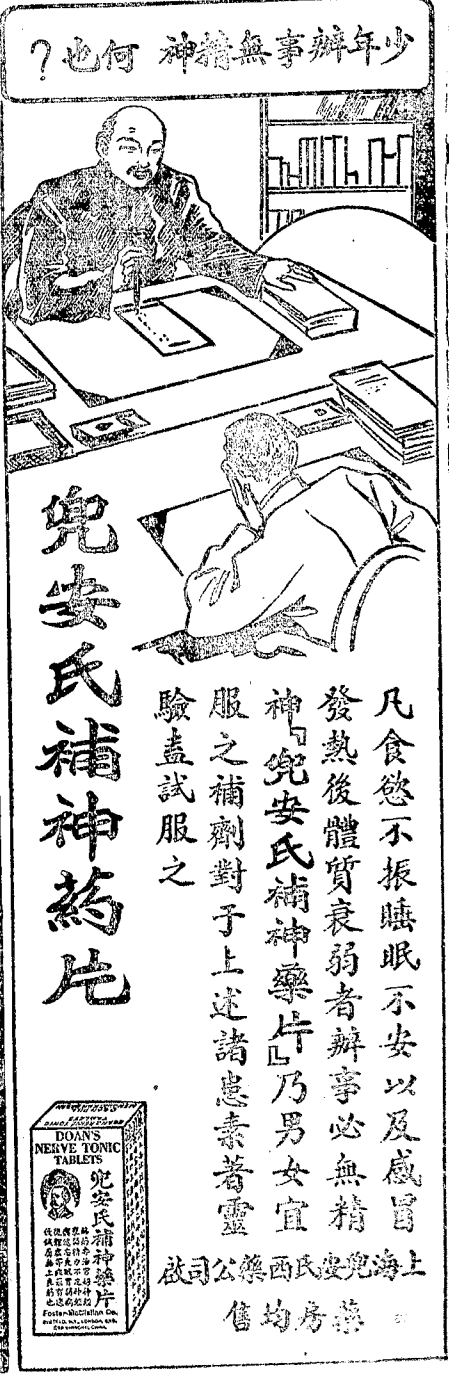 少年辦事無精神何也？
凡食慾不振睡眠不安以及感冒
發熱後體質衰弱者辦事必無精
神『兜安氏補神藥片』乃男女宜
服之補劑對于上述諸患素著靈
驗盍試服之
兜安氏補神葯片
上海兜安氏西藥公司啟
藥房均售
DOAN'S
NERVE TONIC
TABLETS
兜安氏補神藥片
Foster-McClellan Co.